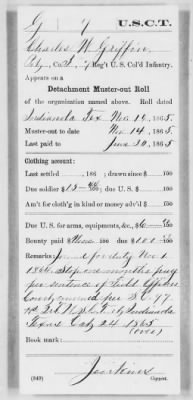 G 7 U.S.C.T.
Charles W. Griffin
Co. 7 Reg't U. S. Col'd Infantry.
Appears on a
Detachment Muster-out Roll
of the organization named above. Roll dated
Indianola Tex Nov. 14, 1865.
Muster-out to date Nov 14, 1865
Last paid to June 30, 1865
Clothing account:
Last settled , 186 ; drawn since $ 100
Due soldier $ 100; due U. S. $ 100
Am't for cloth'g in kind or money adv'd $ 100
Due U. S. for arms, equipments, &c., $6 100
Bounty paid $ 100; due $ 100 100
Remarks: for duty Nov 1
1864. Stop one months pay
per sentence of Field Officers
Court
Indianola
Texas 24 1865
(over)
Book mark:
Jenkins
(349) Copyist.